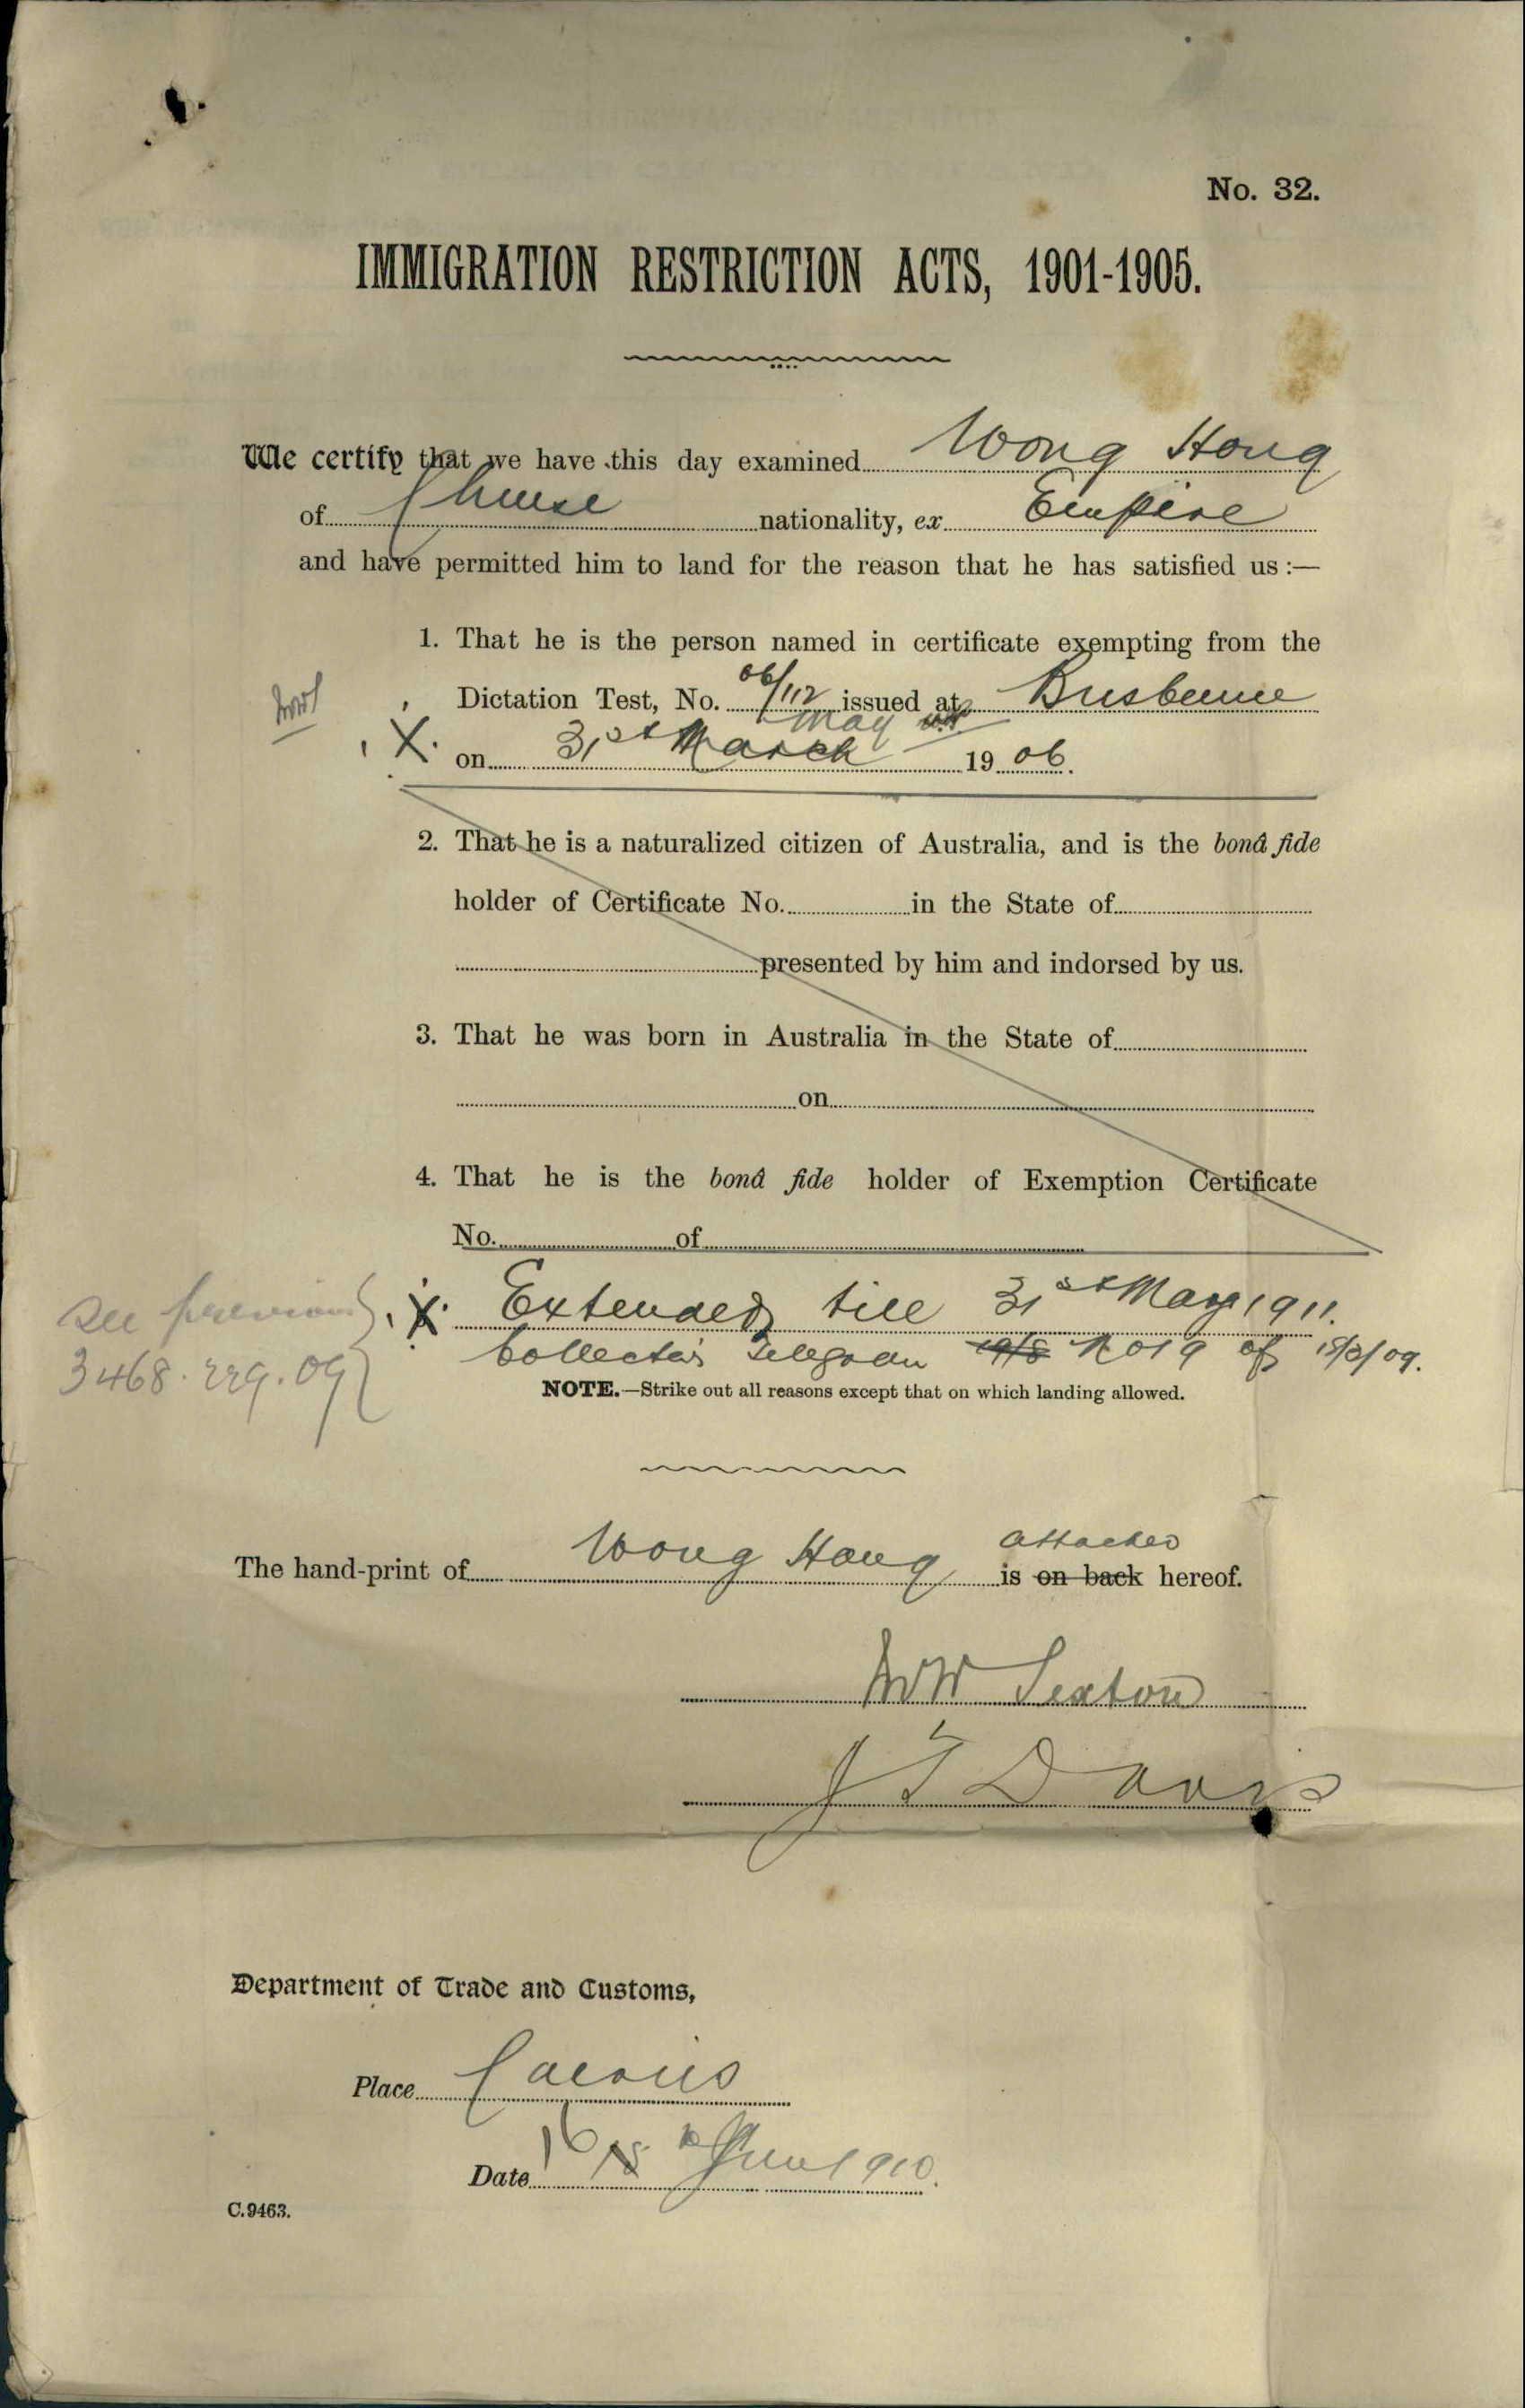 No. 32.
IMMIGRATION RESTRICTION ACTS, 1901-1905.
We certify that we have this day examined Wong Hong
of Chinese nationality, ex Empire
and have permitted him to land for the reason that he has satisfied us :—
1. That he is the person named in certificate exempting from the
Dictation Test, No. 06/112 issued at Brisbane
May
X. on 31st March 1906.
2. That he is a naturalized citizen of Australia, and is the bonâ fide
holder of Certificate No. in the State of
presented by him and indorsed by us.
3. That he was born in Australia in the State of
on
4. That he is the bonâ fide holder of Exemption Certificate
No. of
see previous
X. Extended till 31st May 1911.
3468.229.09
Collector's Telegram No 19 of 18/3/09.
NOTE.—Strike out all reasons except that on which landing allowed.
attached
The hand-print of Wong Hong is on back hereof.
WW Sexton
J T Davis
Department of Trade and Customs,
Place Cairns
Date 16 18 June 1910.
C.9463.